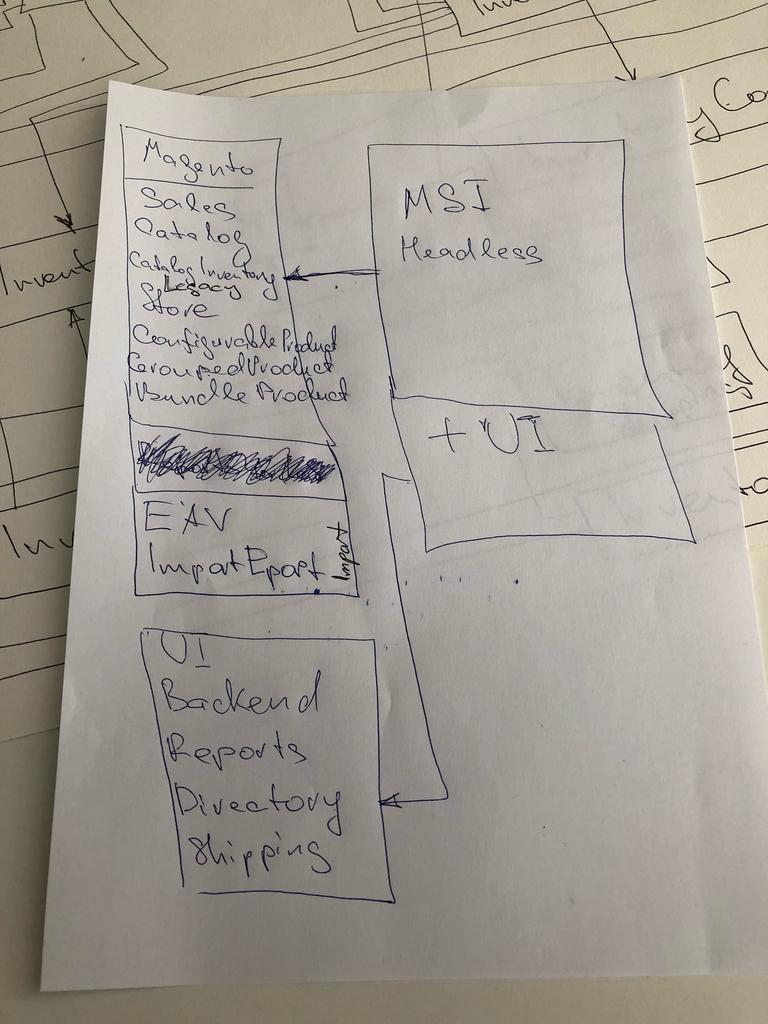 Magento
Sales
Catalog
CatalogInventory
Legacy
Store
ConfigurableProduct
GroupedProduct
Bundle Product
EAV
ImportEport
Import
MSI
Headless
+ UI
UI
Backend
Reports
Directory
Shipping
Invent
Inv
y Co